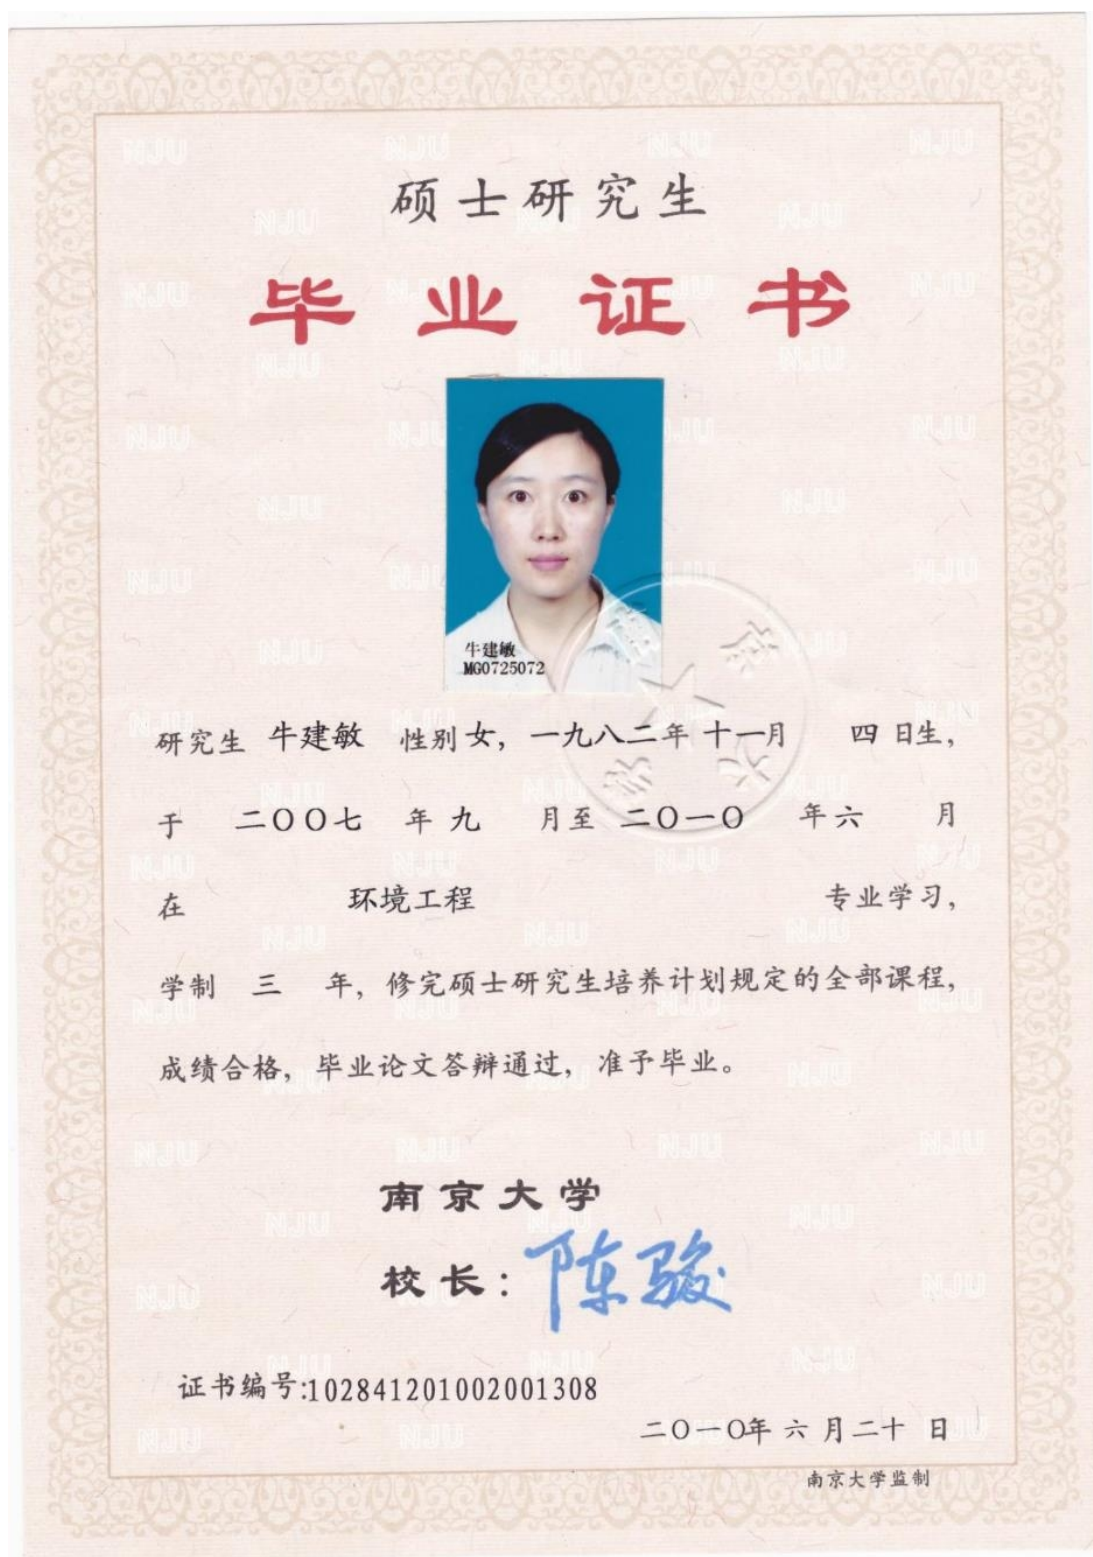 硕士研究生
毕业证书
牛建敏
MG0725072
研究生 牛建敏 性别女，一九八二年十一月 四日生，
于 二〇〇七 年九 月至 二〇一〇 年六 月
在 环境工程 专业学习，
学制 三 年，修完硕士研究生培养计划规定的全部课程，
成绩合格，毕业论文答辩通过，准予毕业。
南京大学
校长：陈骏
证书编号:102841201002001308
二〇一〇年 六 月二十 日
南京大学监制